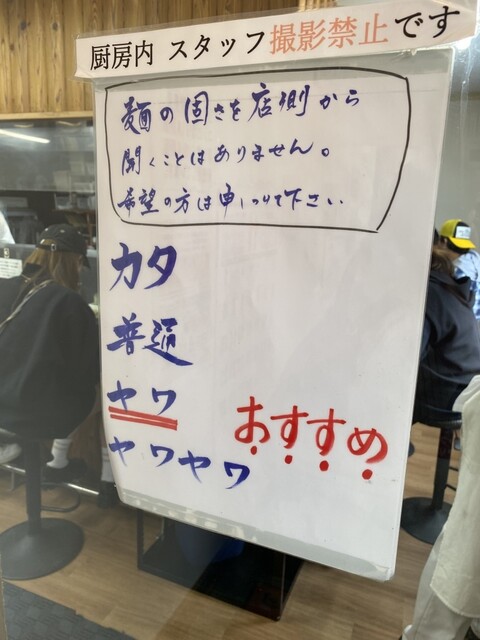 厨房内 スタッフ撮影禁止です
麺の固さを店側から
聞くことはありません。
希望の方は申しつけて下さい
カタ
普通
ヤワ
おすすめ
ヤワヤワ